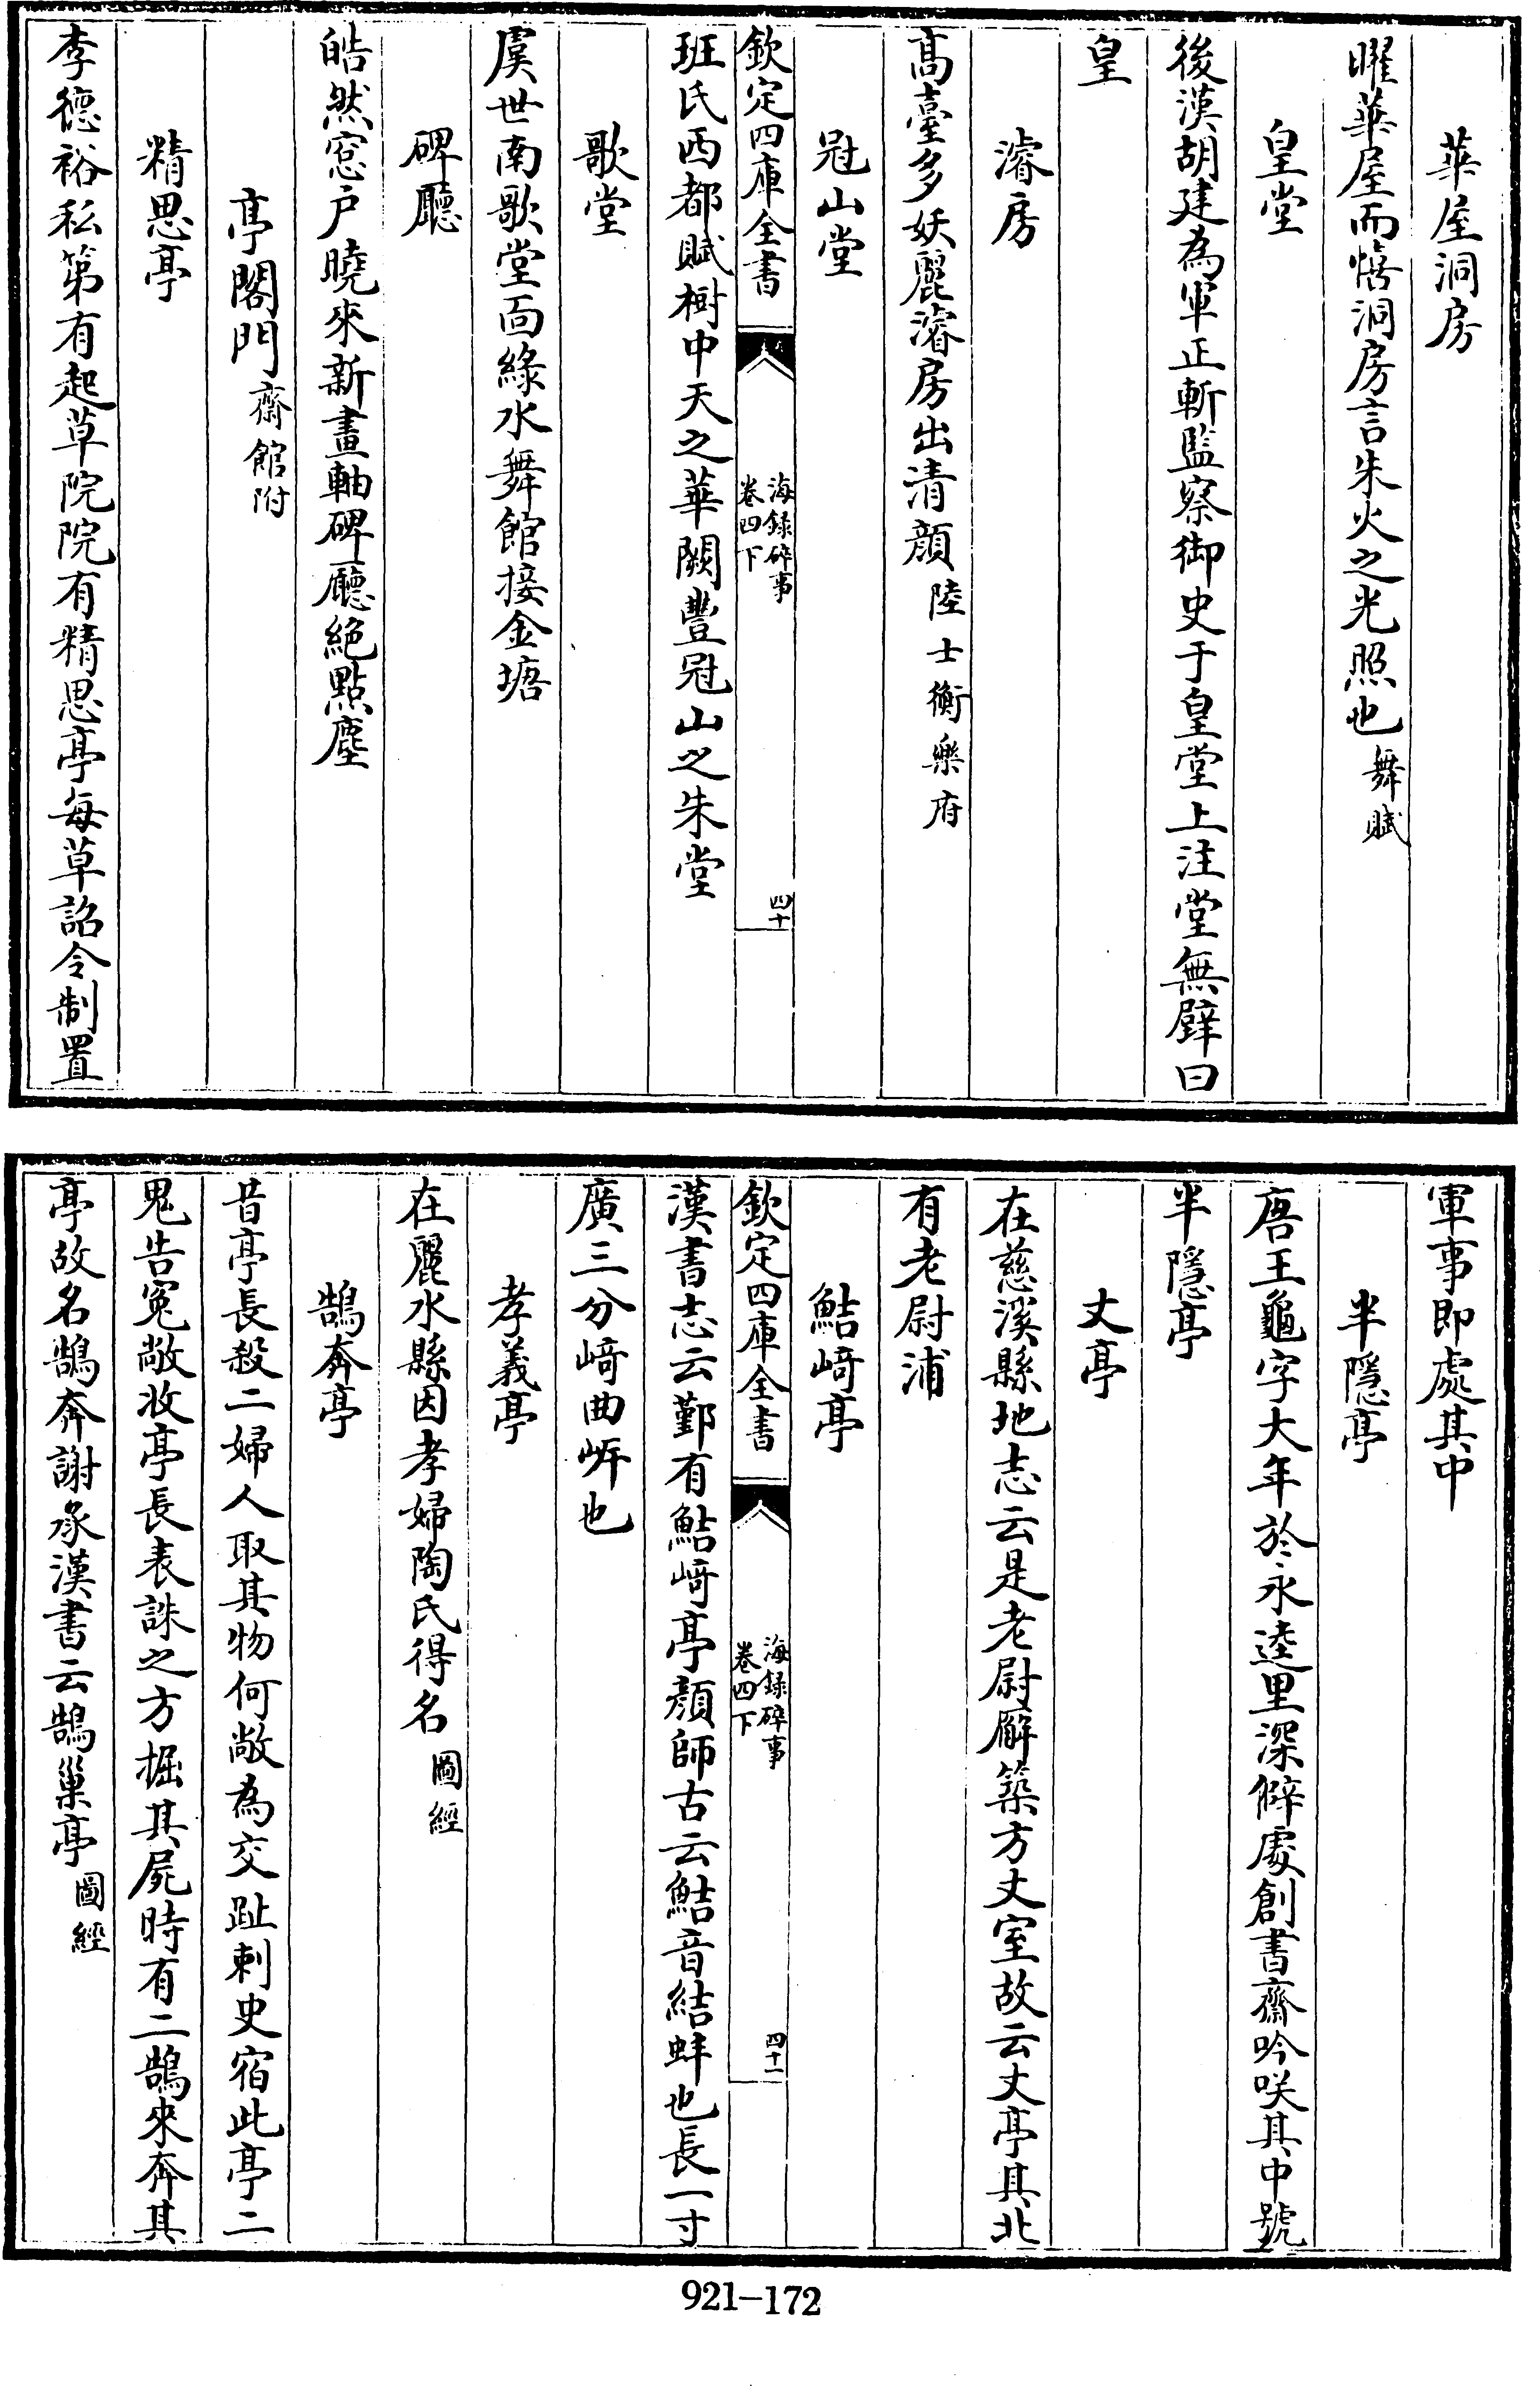 華屋洞房
曜華屋而熺洞房言朱火之光照也舞賦
皇堂
後漢胡建為軍正斬監察御史于皇堂上注堂無壁曰
皇
濬房
高臺多妖麗濬房出清顔陸士衡樂府
冠山堂
欽定四庫全書
海録碎事
卷四下
四十
班氏西都賦樹中天之華闕豐冠山之朱堂
歌堂
虞世南歌堂面緑水舞館接金塘
碑廳
皓然窓户曉來新畫軸碑廳絶點塵
亭閣門齋館附
精思亭
李德裕私第有起草院院有精思亭每草詔令制置
軍事即處其中
半隱亭
唐王龜字大年於永逵里深僻處創書齋吟咲其中號
半隱亭
丈亭
在慈溪縣地志云是老尉廨築方丈室故云丈亭其北
有老尉浦
鮚﨑亭
欽定四庫全書
海録碎事
卷四下
四十一
漢書志云鄞有鮚﨑亭顔師古云鮚音結蚌也長一寸
廣三分﨑曲岍也
孝義亭
在麗水縣因孝婦陶氏得名圖經
鵠奔亭
昔亭長殺二婦人取其物何敞為交趾刺史宿此亭二
鬼告寃敞收亭長表誅之方掘其屍時有二鵠來奔其
亭故名鵠奔謝承漢書云鵠巢亭圖經
921-172